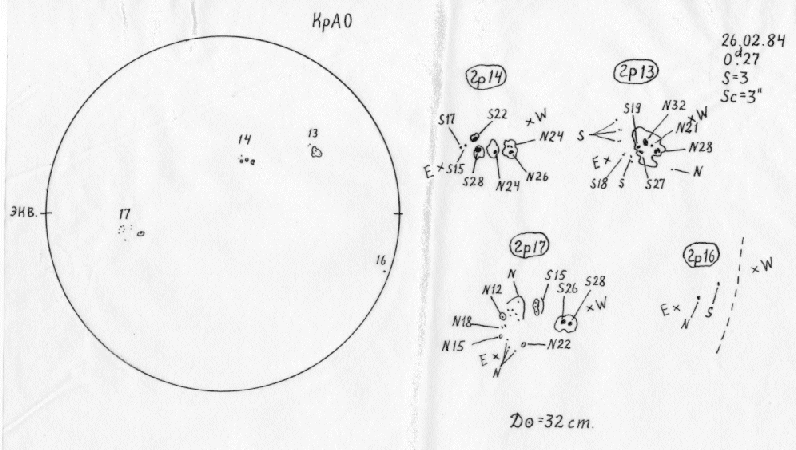 КрАО
26.02.84
0ᵈ.27
S=3
Sc=3"
14
13
ЭКВ.
17
16
гр14
S17
S22
×W
N24
E×
S15
S28
N24
N26
гр13
S19
N32
×W
S
N21
N28
E×
N
S18
S
S27
гр17
N
S15
S26
S28
N12
×W
N18
N15
E×
N22
N
гр16
×W
E×
N
S
D⊙=32 cm.